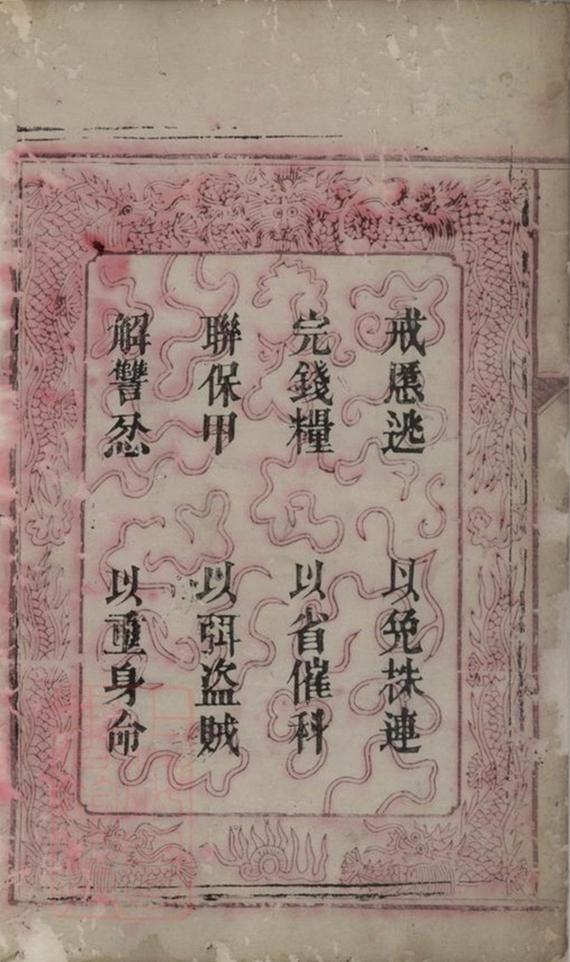 戒慝逃以免株連
完錢糧以省催科
聯保甲以弭盜賊
解讐忿以重身命